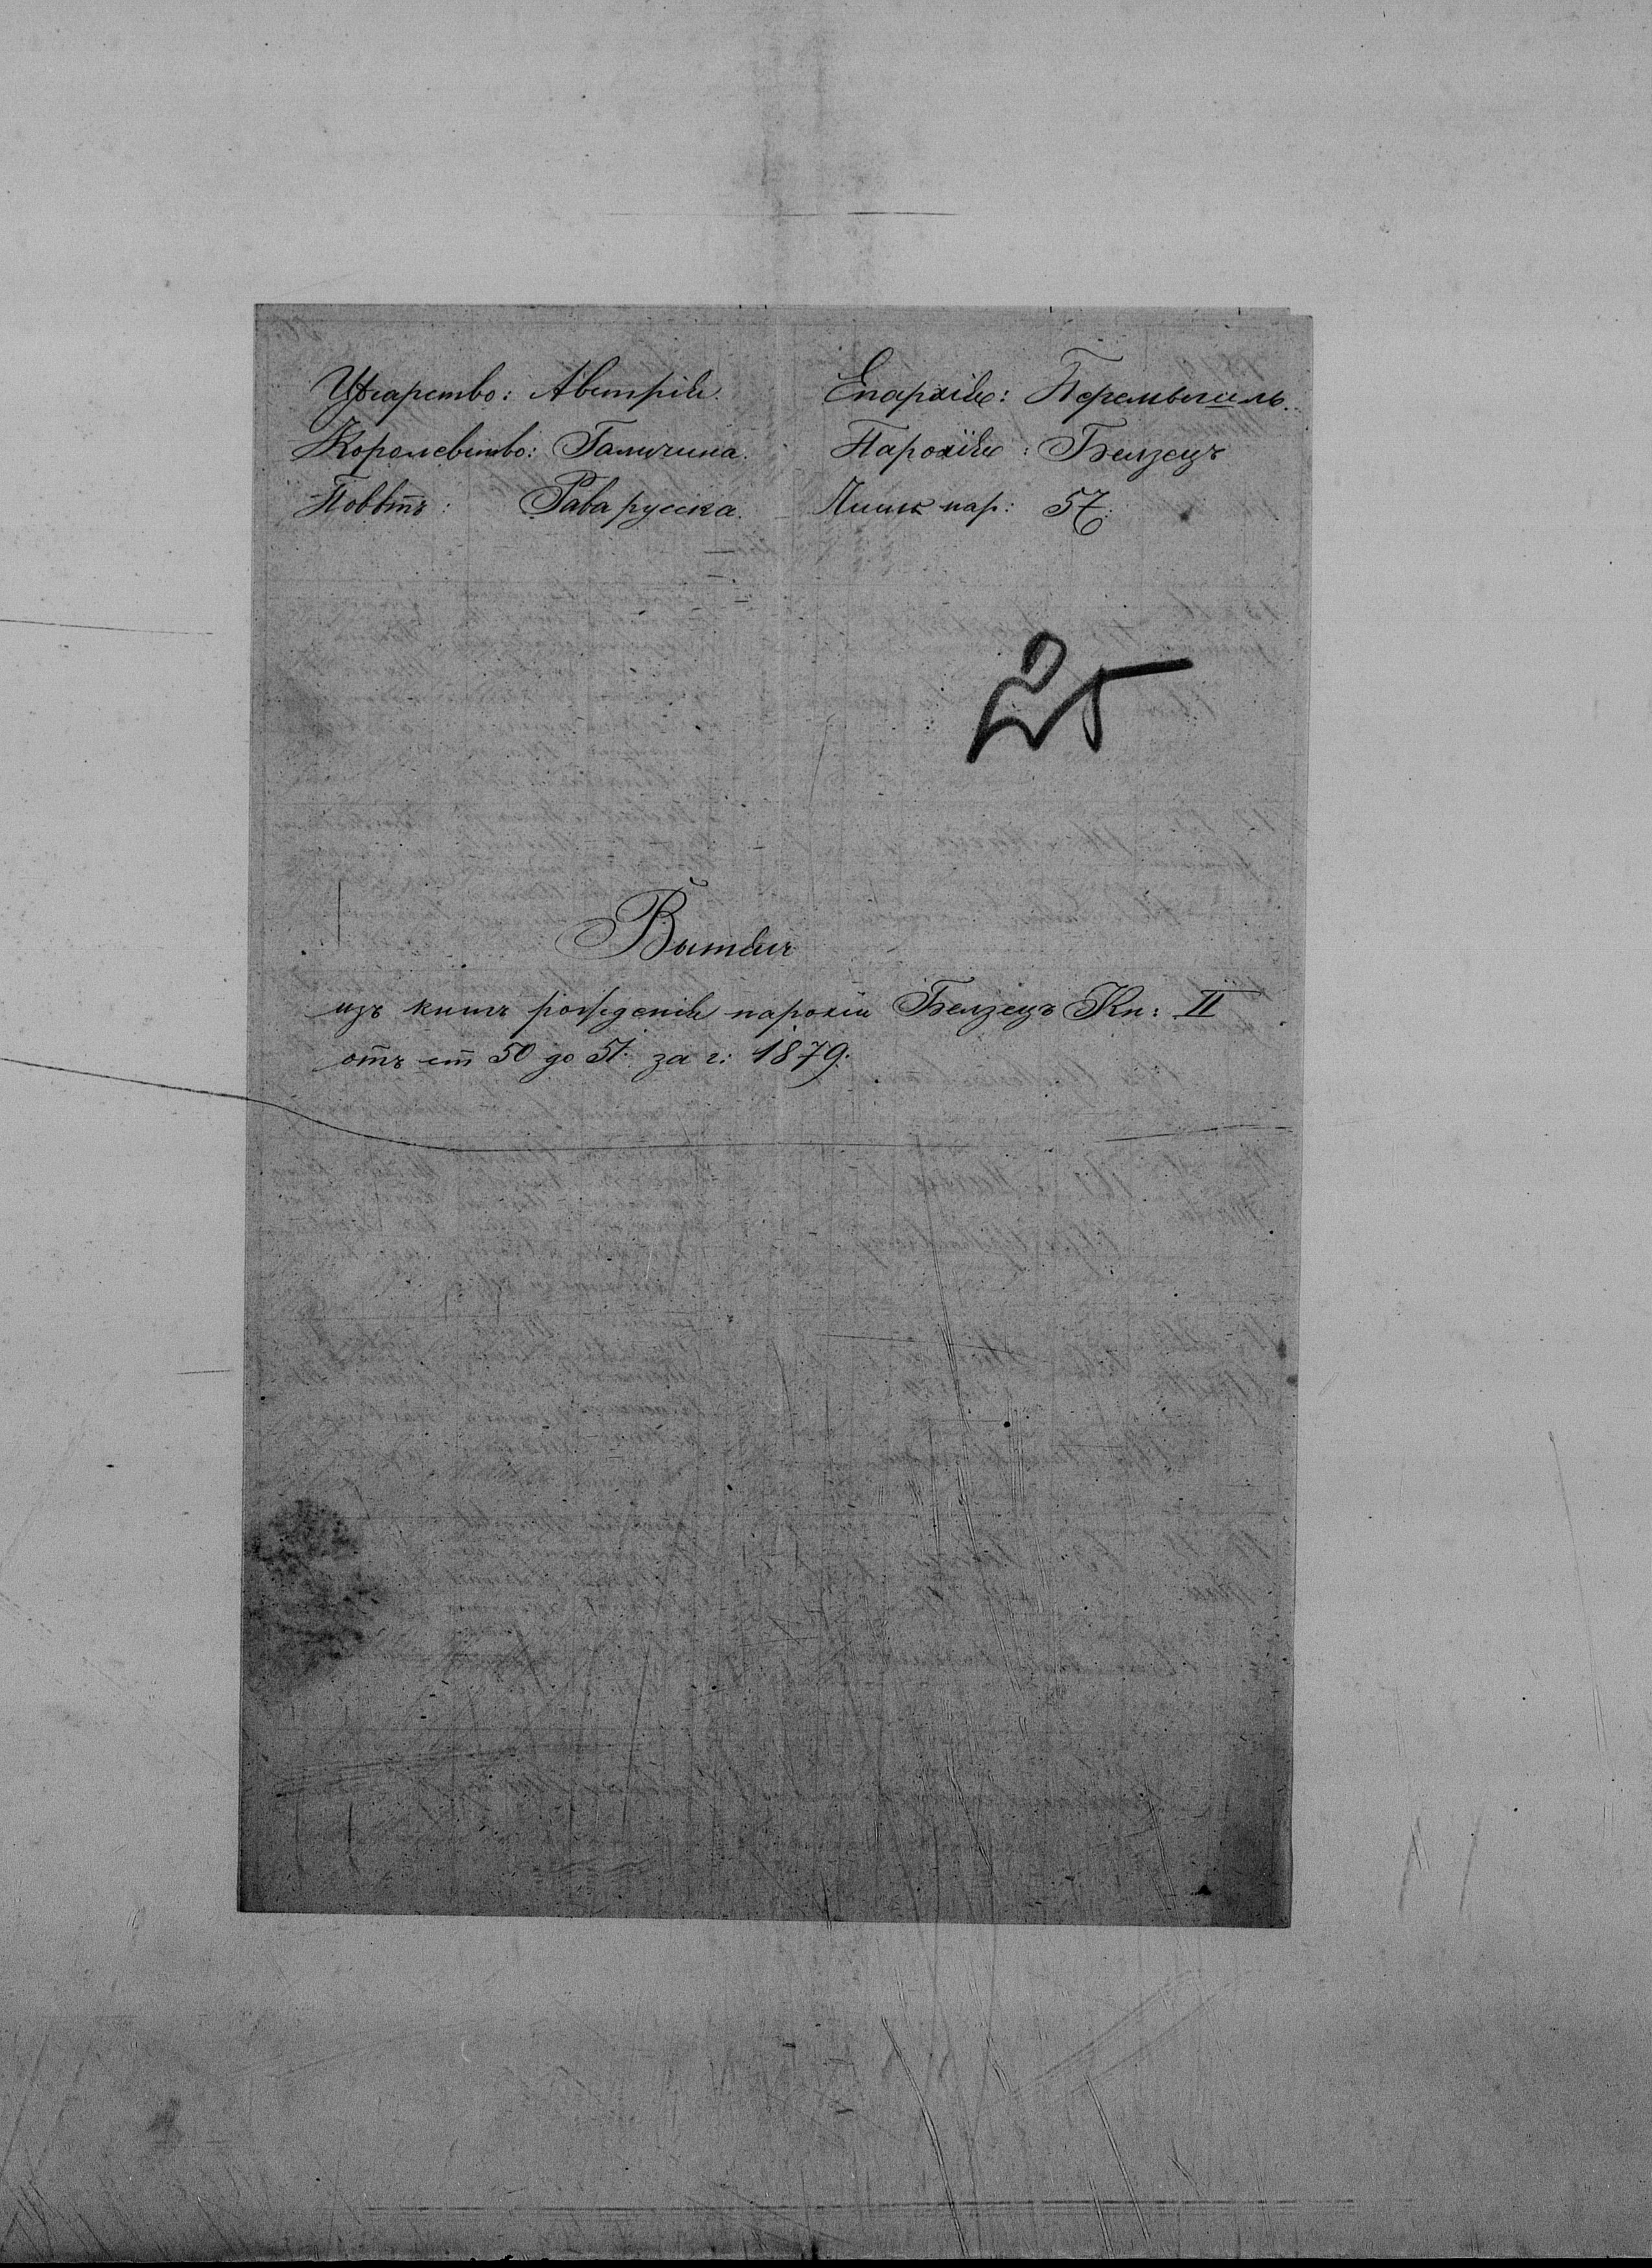 Цѣсарство: Австрія. Епархія: Перемышль.
Королевство: Галичина. Парохія: Белзецъ
Повѣтъ: Рава русска. пар: 57.
25
Вытягъ
изъ книгъ рожденія парохіи Белзецъ Кн: II
отъ ст 50 до 51. за г: 1879.